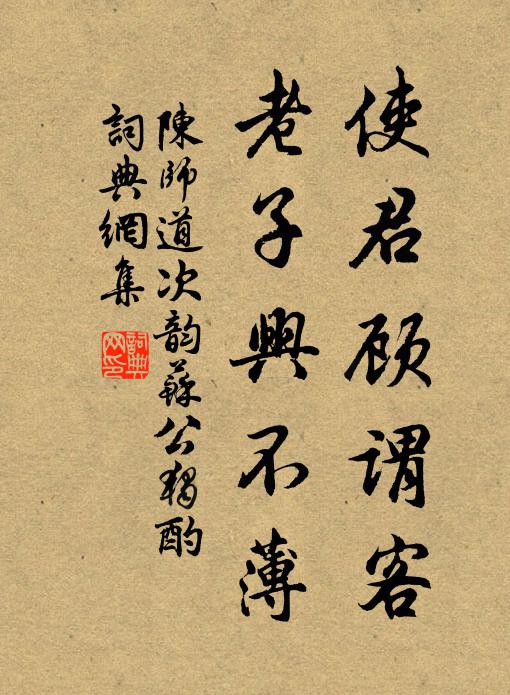 使君顾谓客
老子興不薄
陳師道次韵蘇公獨酌
詞典網集
詞典網印